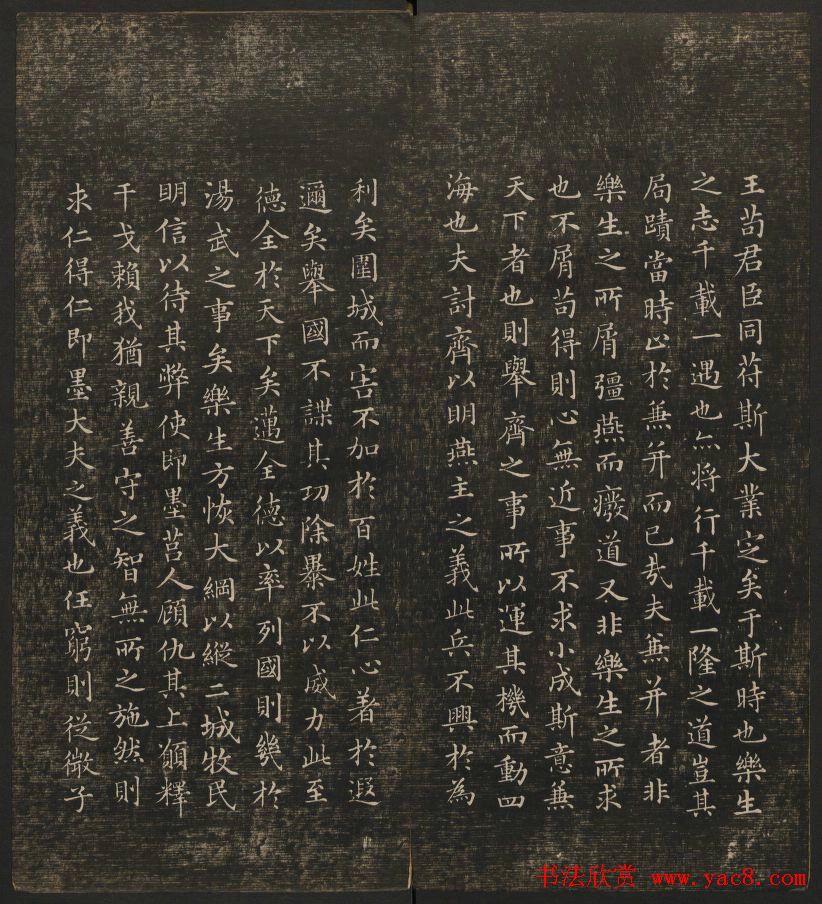 王苟君臣同苻斯大業定矣于斯時也樂生
之志千載一遇也亦將行千載一隆之道豈其
局蹟當時止於兼并而已哉夫兼并者非
樂生之所屑彊燕而癈道又非樂生之所求
也不屑苟得則心無近事不求小成斯意兼
天下者也則舉齊之事所以運其機而動四
海也夫討齊以明燕主之義此兵不興於為
利矣圍城而害不加於百姓此仁心著於遐
邇矣舉國不謀其功除暴不以威力此至
德全於天下矣邁全德以率列國則幾於
湯武之事矣樂生方恢大綱以縱二城牧民
明信以待其弊使即墨莒人顧仇其上願釋
干戈賴我猶親善守之智無所之施然則
求仁得仁即墨大夫之義也任窮則從微子
书法欣赏 www.yac8.com